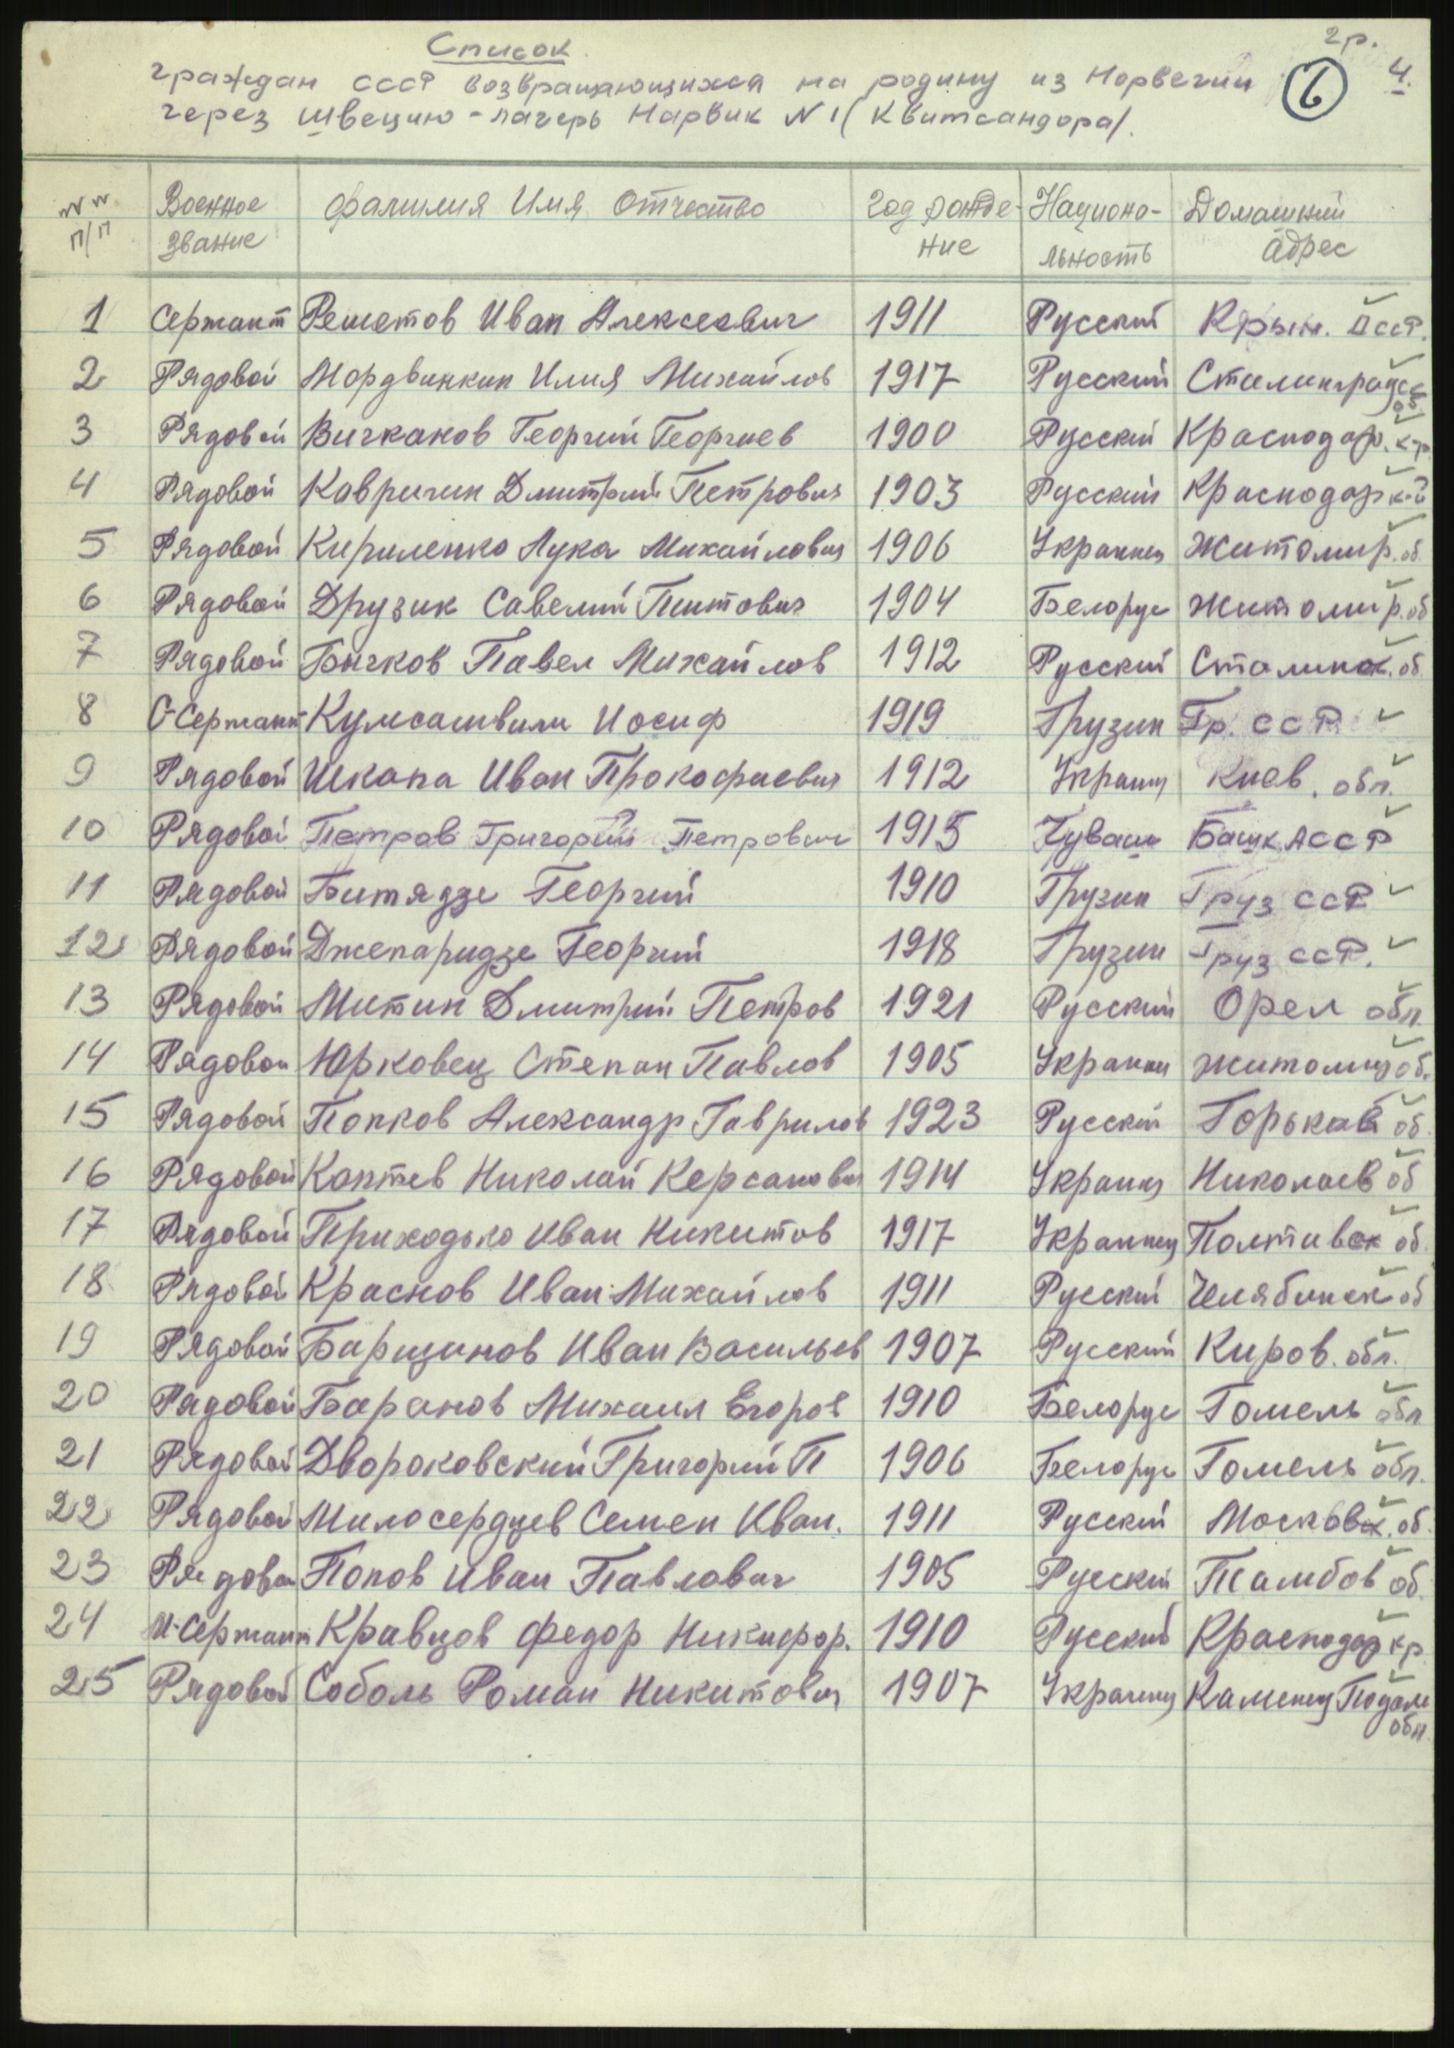 2р.
4.
6
Список
граждан СССР возвращающихся на родину из Норвегии
через Швецию - лагерь Нарвик N 1 (Квитсандора).
№ № п/п | Военное звание | Фамилия Имя Отчество | Год рожде-ние | Национа-льность | Домашний адрес
1 Сержант Решетов Иван Алексеевич 1911 Русский Крым. АССР.
2 Рядовой Мордвинкин Илия Михайлов 1917 Русский Сталинградск об
3 Рядовой Вичканов Георгий Георгиев 1900 Русский Краснодар. к-р.
4 Рядовой Кавричин Дмитрий Петрович 1903 Русский Краснодар к-й
5 Рядовой Кириленко Лука Михайлович 1906 Украинец Житомир. об.
6 Рядовой Друзик Савелий Титович 1904 Белорус Житомир. об
7 Рядовой Бычков Павел Михайлов 1912 Русский Сталинск. об
8 С-Сержант Кумсашвили Иосиф 1919 Грузин Гр. ССР
9 Рядовой Шкапа Иван Прокофиевич 1912 Украинц Киев. обл.
10 Рядовой Петров Григорий Петрович 1915 Чуваш Башк. АССР
11 Рядовой Битядзе Георгий 1910 Грузин Груз ССР
12 Рядовой Джепаридзе Георгий 1918 Грузин Груз ССР.
13 Рядовой Митин Дмитрий Петров 1921 Русский Орел обл.
14 Рядовой Юрковец Степан Павлов 1905 Украинц Житомир об.
15 Рядовой Попков Александр Гаврилов 1923 Русский Горькая об.
16 Рядовой Коптев Николай Керсанович 1914 Украинц Николаев об
17 Рядовой Приходько Иван Никитов 1917 Украинец Полтавск об.
18 Рядовой Краснов Иван Михайлов 1911 Русский Челябинск об
19 Рядовой Барщинов Иван Васильев 1907 Русский Киров. обл.
20 Рядовой Баранов Михаил Егоров 1910 Белорус Гомель обл
21 Рядовой Двороковский Григорий П 1906 Белорус Гомель обл.
22 Рядовой Милосердцев Семен Иван. 1911 Русский Московск. об.
23 Рядовой Попов Иван Павлович 1905 Русский Тамбов об.
24 М-Сержант Кравцов Федор Никифор. 1910 Русский Краснодар кр.
25 Рядовой Соболь Роман Никитович 1907 Украинц Каменец Подоль обл.